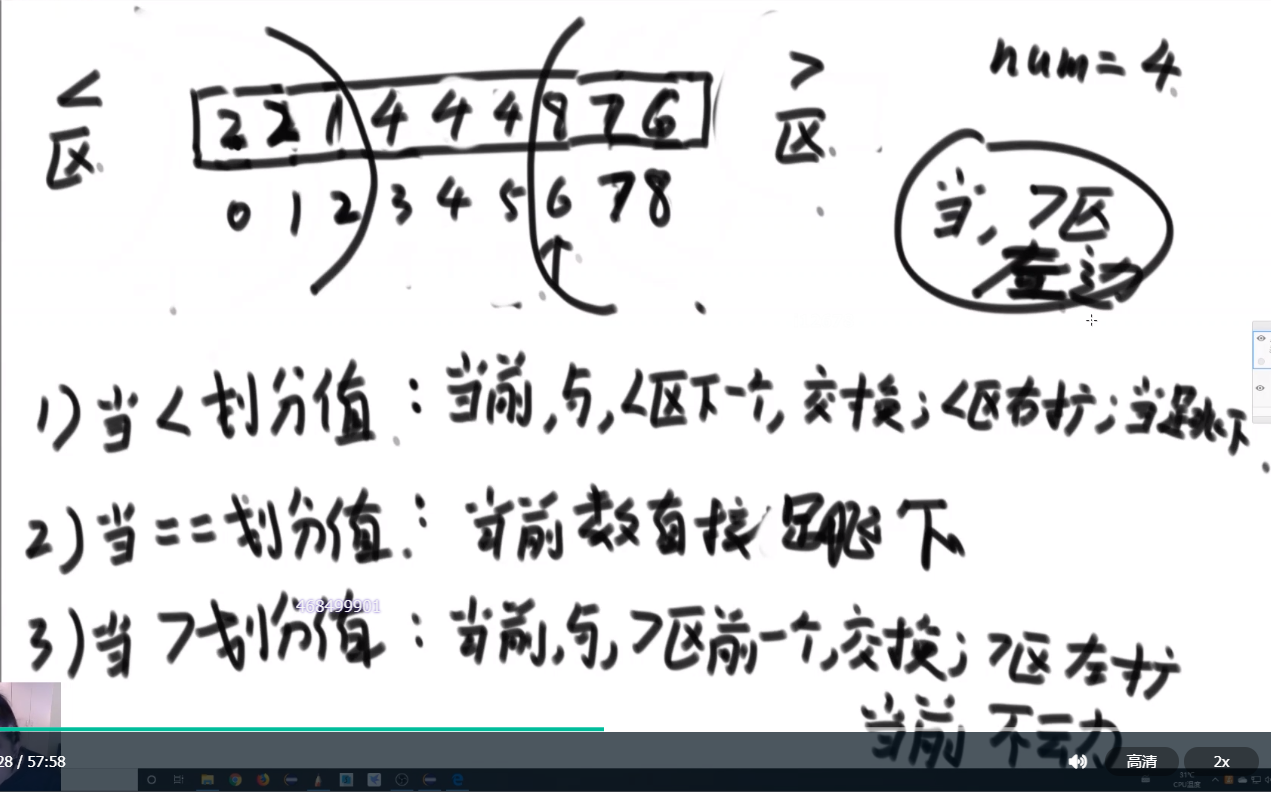 < 区 > 区 num = 4
2 2 1 4 4 4 8 7 6
0 1 2 3 4 5 6 7 8
当, >区
左边
1) 当 < 划分值 : 当前,与,<区下一个,交换; <区右扩; 当跳下
2) 当 == 划分值 : 当前数直接跳下
3) 当 > 划分值 : 当前,与,>区前一个,交换; >区左扩
当前不动
468499901
28 / 57:58
高清
2x
31℃
CPU温度